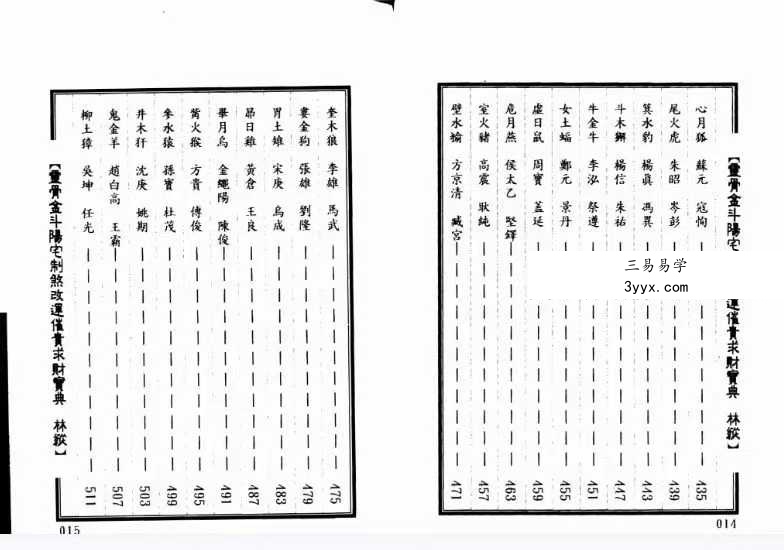 心月狐 蘇元 寇恂 435
尾火虎 朱昭 岑彭 439
箕水豹 楊眞 馮異 443
斗木獬 楊信 朱祐 447
牛金牛 李泓 祭遵 451
女土蝠 鄭元 景丹 455
虛日鼠 周寶 蓋延 459
危月燕 侯太乙 堅鐔 463
室火豬 高震 耿純 457
壁水㺄 方京清 臧宮 471
三易易学
3yyx.com
【靈骨金斗陽宅 運催貴求財寶典 林縱】
014
奎木狼 李雄 馬武 475
婁金狗 張雄 劉隆 479
胃土雉 宋庚 烏成 483
昴日雞 黃倉 王良 487
畢月烏 金繩陽 陳俊 491
觜火猴 方貴 傅俊 495
參水猿 孫寶 杜茂 499
井木犴 沈庚 姚期 503
鬼金羊 趙白高 王霸 507
柳土獐 吳坤 任光 511
【靈骨金斗陽宅制煞改運催貴求財寶典 林縱】
015